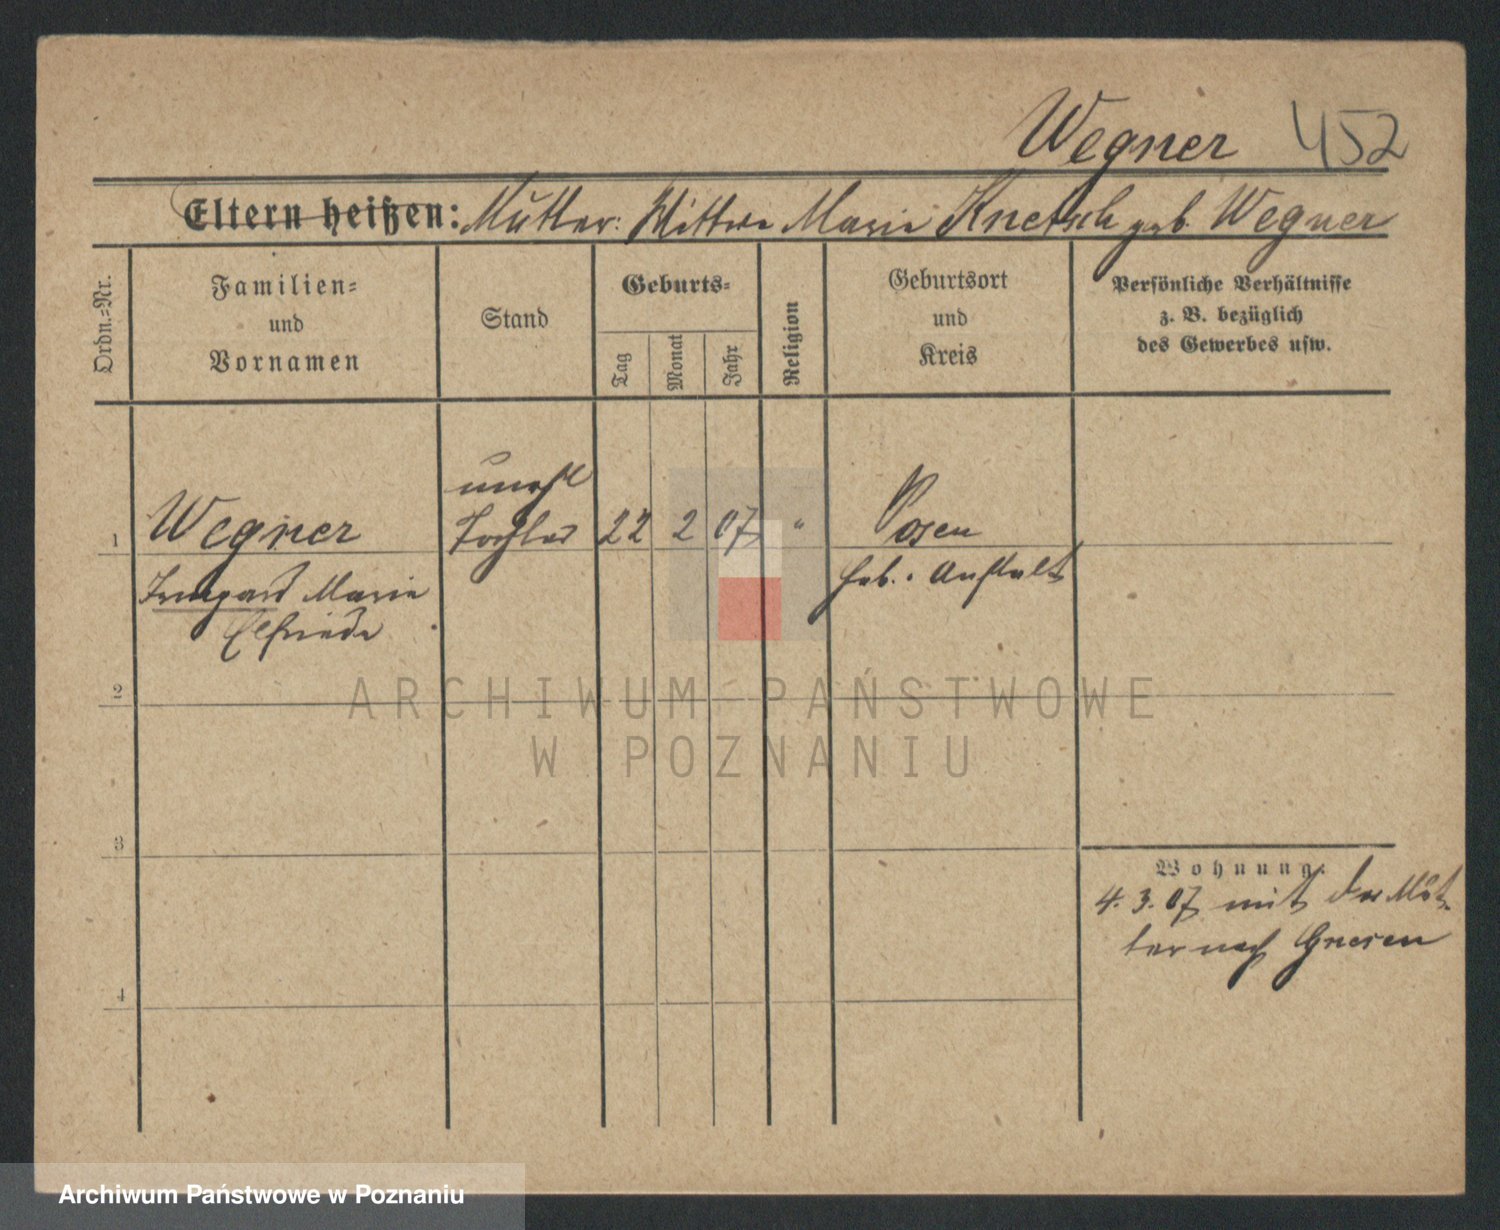 Wegner 452
Eltern heißen: Mutter: Wittwe Marie Knetsch geb. Wegner
Ordn.-Nr.
Familien-
und
Vornamen
Stand
Geburts-
Tag
Monat
Jahr
Religion
Geburtsort
und
Kreis
Persönliche Verhältnisse
z. B. bezüglich
des Gewerbes usw.
unehl
1 Wegner Tochter 22 2 07 " Posen
Irmgard Marie
Elfriede
Heb. Anstalt
2
3
4
Wohnung.
4. 3. 07 mit der Mut-
ter nach Gnesen
ARCHIWUM PAŃSTWOWE
W POZNANIU
Archiwum Państwowe w Poznaniu